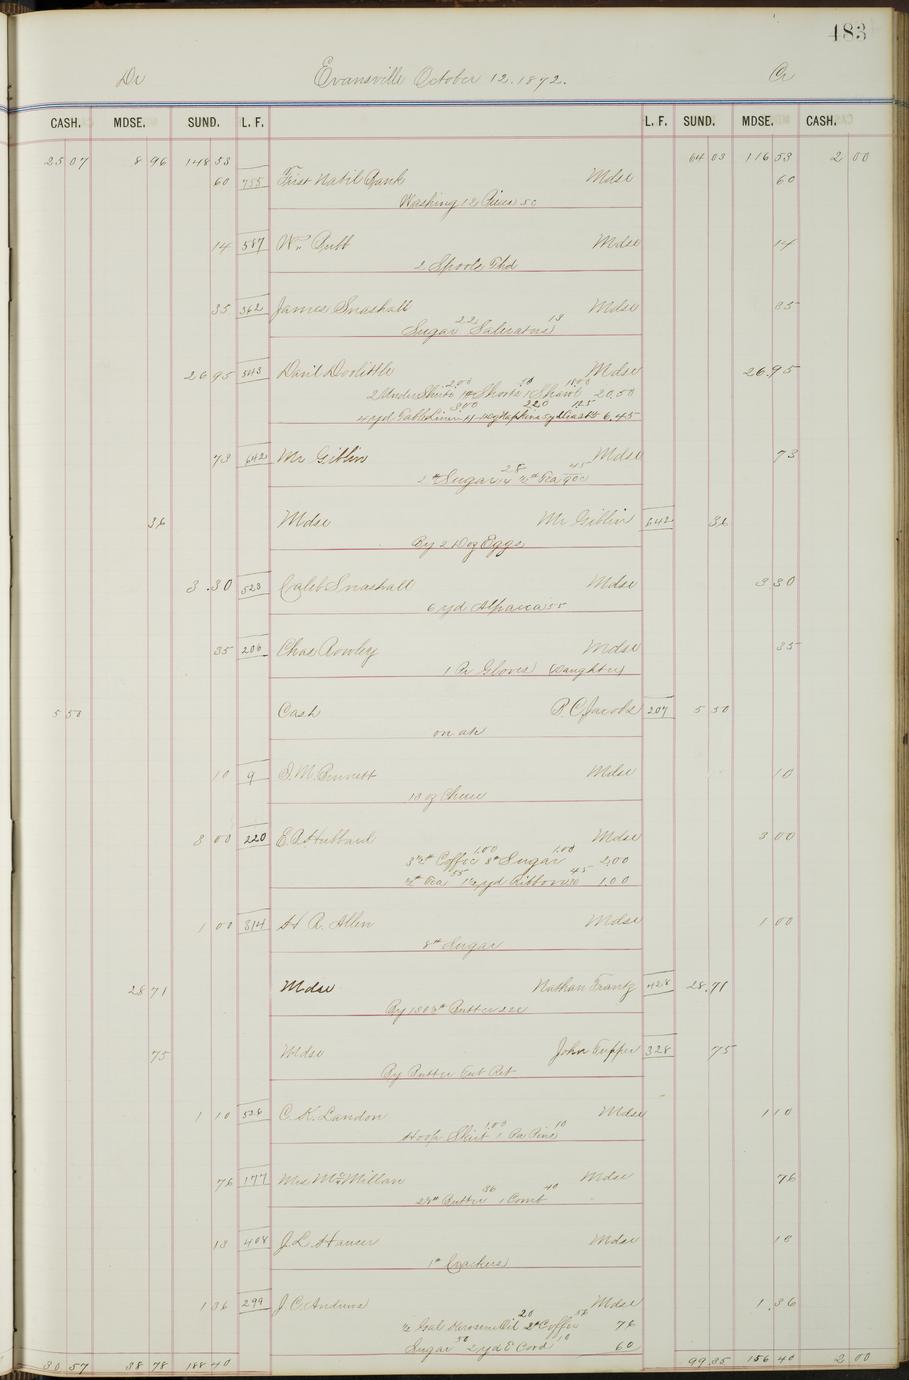 483
Dr Evansville October 12. 1872. Cr
CASH. MDSE. SUND. L. F. L. F. SUND. MDSE. CASH.
25 07 8 96 148 53 64 03 116 53 2 00
60 755 First Natil Bank Mdse 60
Washing 12 Pieces 5c
14 587 Wm Gutt Mdse 14
2 Spools Thd
35 362 James Snashall Mdse 35
Sugar 22 Saleratus 13
26 95 543 Danil Doolittle Mdse 26 95
2 Under Shirts 200 1 pr Shorts 50 1 Shawl 18.00 20.50
4 yd Table Linen 3.00 Napkins 2 20 1 25 6.45
73 642 Mr Giblin Mdse 73
2 # Sugar 28 ½ # Tea 45 90c
36 Mdse Mr Giblin 642 36
By 2 Doz Eggs
3.30 523 Caleb Snashall Mdse 3 30
6 yd Alpacca 55
35 206 Chas Rowley Mdse 35
1 Pr Gloves (Daughter)
5 50 Cash P. C. Jacobs 207 5 50
on a/c
10 9 I. M. Bennett Mdse 10
13 oz Cheese
3 00 220 E. A. Hubbard Mdse 3 00
3½ # Coffee 1.00 8 # Sugar 1.00 2.00
½ # Tea 55 1½ yd Ribbon 30 45 1.00
1 00 314 H R. Allen Mdse 1 00
8 # Sugar
28 71 Mdse Nathan Frantz 428 28.71
By 130½ # Butter 22c
75 Mdse John Tupper 328 75
By Butter Tub Ret
1 10 526 C. K. Landon Mdse 1 10
Hoop Skirt 1.00 1 Pa Pins 10
76 177 Mrs McMillan Mdse 76
2¼ # Butter 36 1 Comb 40
13 408 J. L. Hauser Mdse 13
1 # Crackers
1 36 299 J. C. Andrews Mdse 1.36
½ Gal Kerosene Oil 20 2 # Coffee 56 76
Sugar 50 2 yd E Cord 10 60
30 57 38 78 188 40 99 35 156 40 2 00